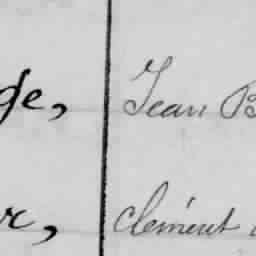 ge, Jean B
r, clément